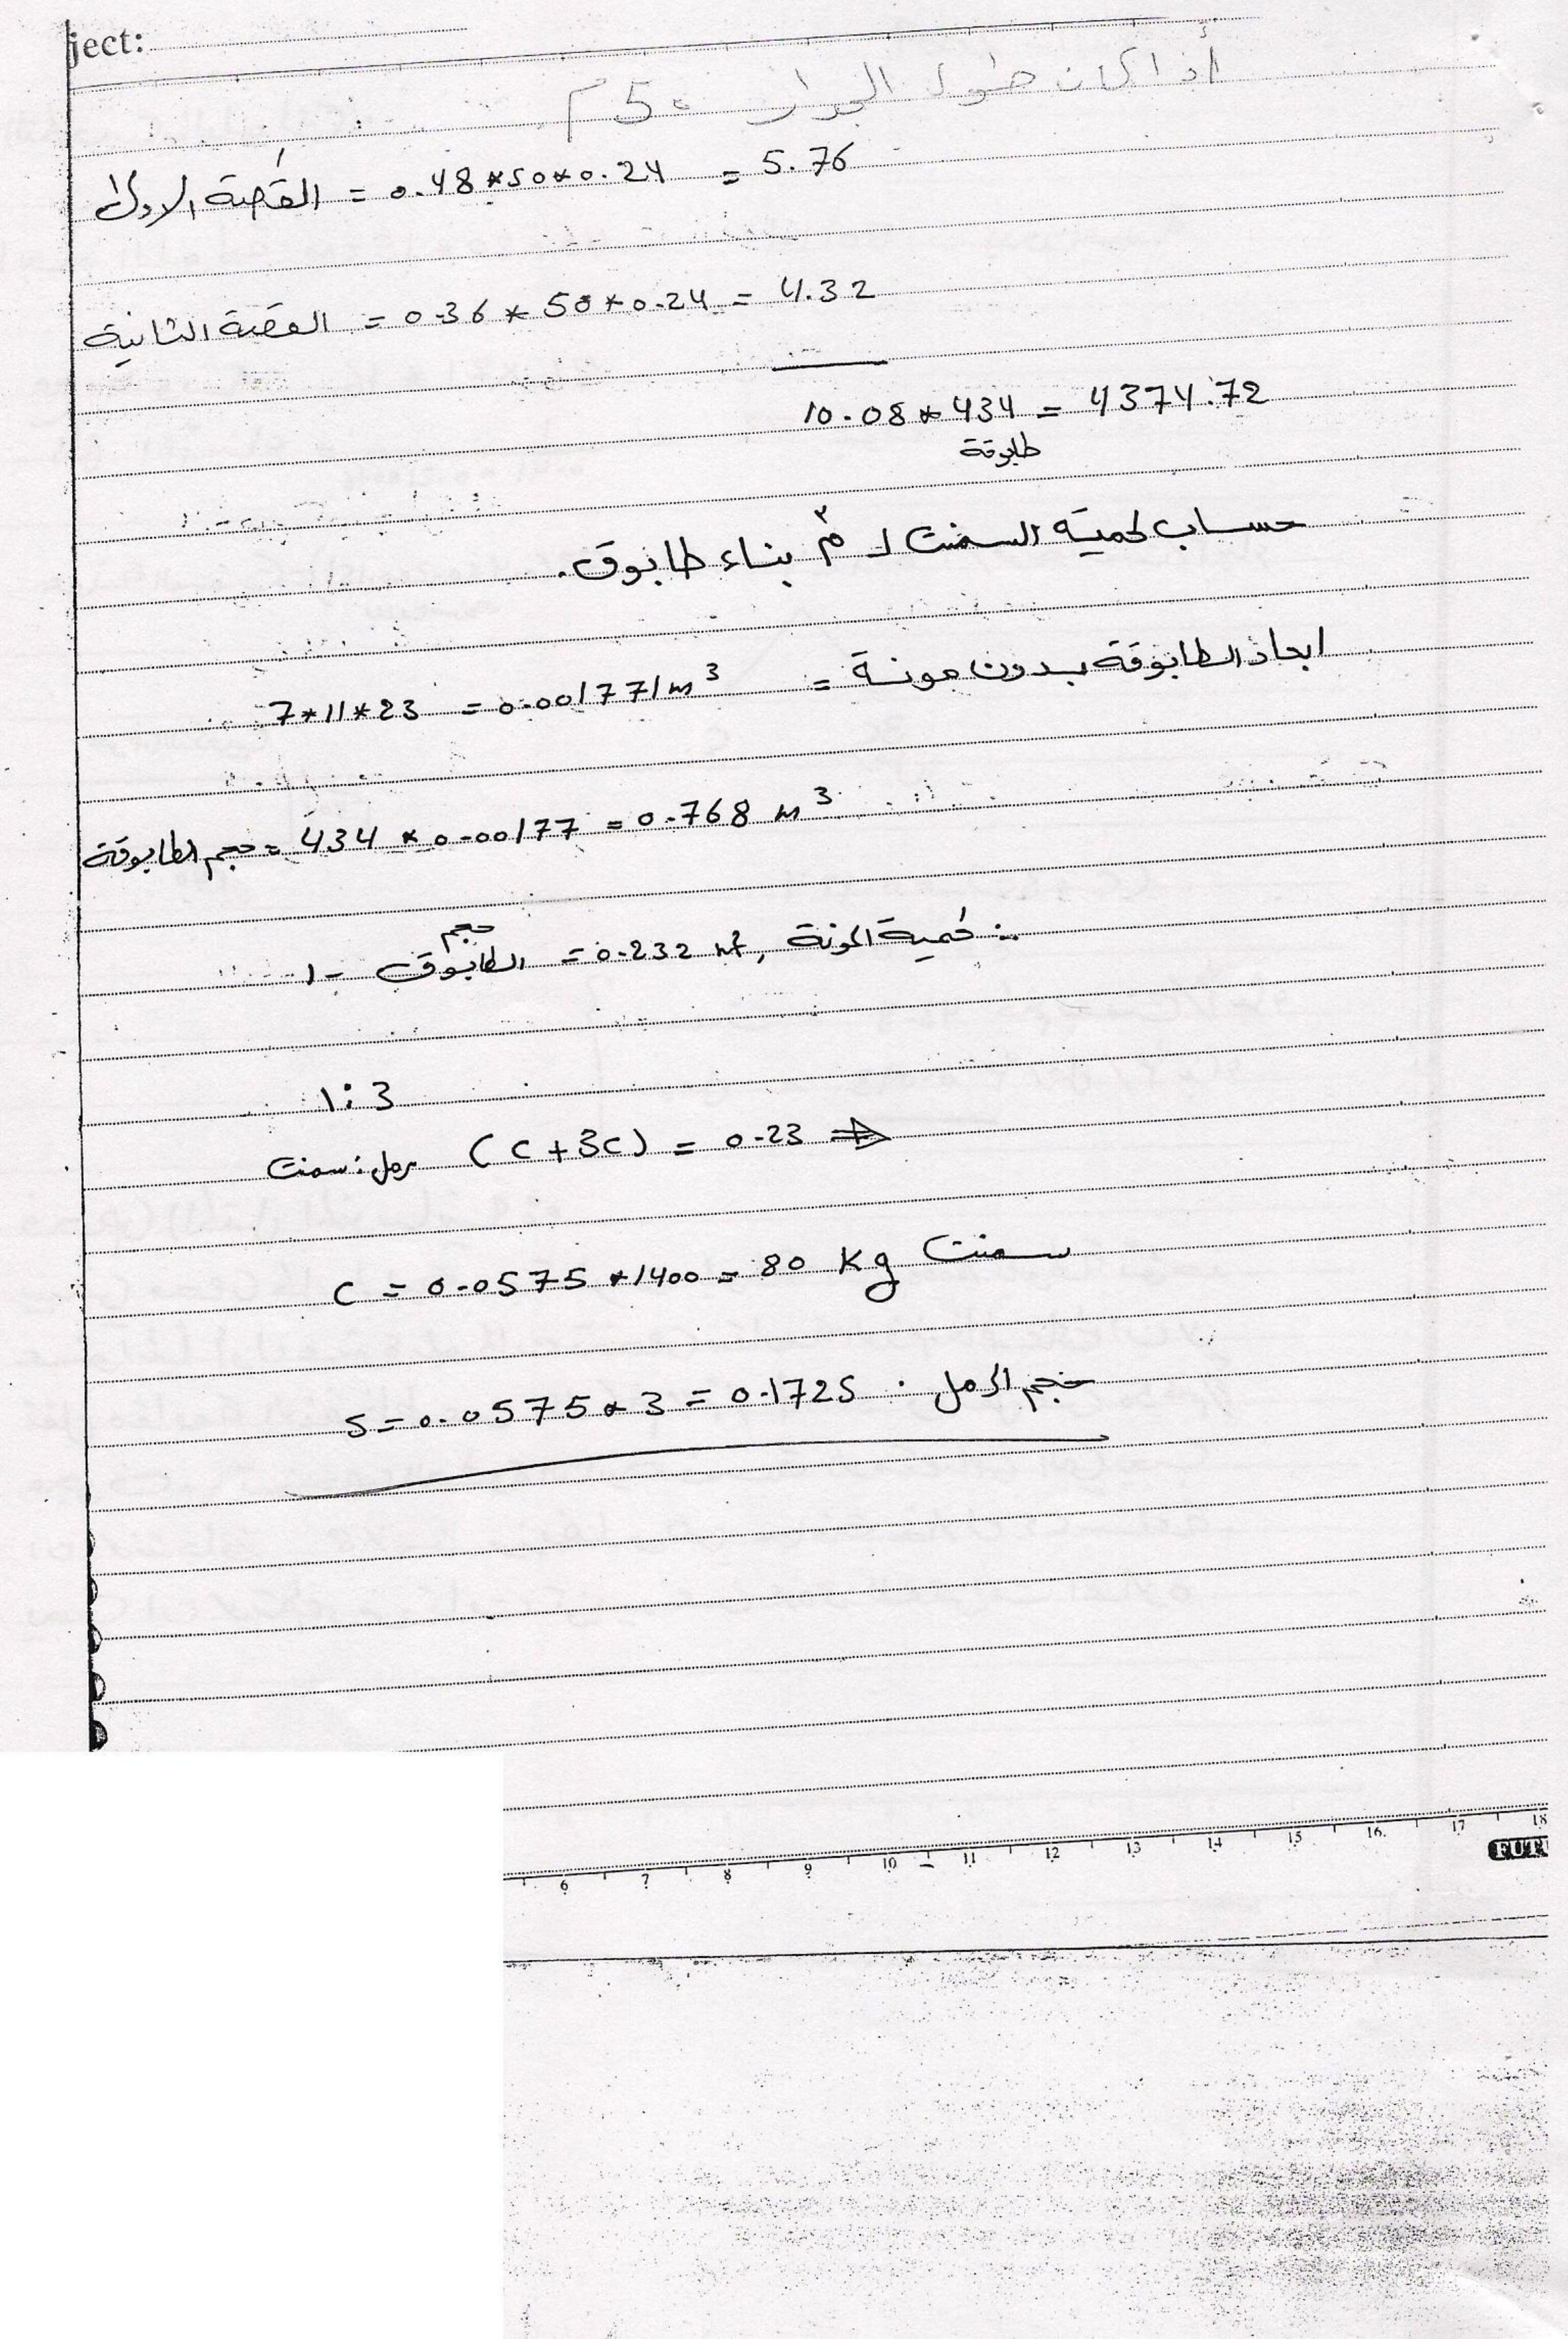 ject:
أذا كان طول الجدار 50 م
القصة الاولى = 0.48*50*0.24 = 5.76
القصة الثانية = 0.36*50*0.24 = 4.32
10.08*434 = 4374.72
طابوقة
حساب كمية السمنت لـ م٣ بناء طابوق.
ابعاد الطابوقة بدون مونة =
7*11*23 = 0.001771 m3
حجم الطابوقة = 434*0.00177 = 0.768 m3
∴ كمية المونة, 0.232 m3 =
حجم
1 - الطابوق
1:3
رمل:سمنت (C+3C) = 0.23 ⇒
C = 0.0575*1400 = 80 Kg سمنت
S = 0.0575*3 = 0.1725 . حجم الرمل
6 7 8 9 10 11 12 13 14 15 16 17 18
FUTU